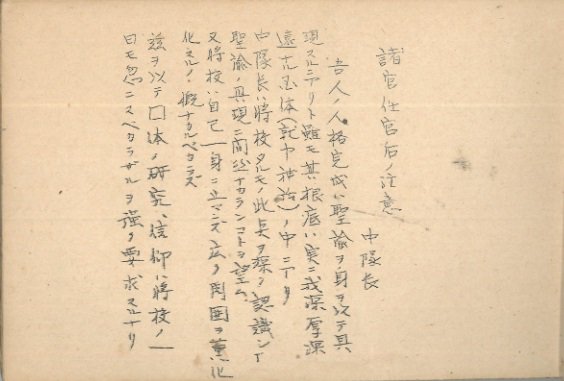 諸官任官后ノ注意
中隊長
吾人ノ人格完成ハ聖諭ヲ身ヲ以テ具
現スルニアリト雖モ其ハ根底ハ実ニ我深厚深
遠ナル国体(記ヤ神話)ノ中ニアリ
中隊長ハ将校タルモノ此点ヲ深ク認識シテ
聖諭ノ具現ニ間然ナカランコトヲ望ム
又将校ハ自己一身ニ止マラズ広ク周囲ヲ薫化
化スルノ概ナカルベカラズ
茲ヲ以テ口体ノ研究、信仰ハ将校ノ一
日モ忽ニスベカラザルヲ強ク要求スルナリ